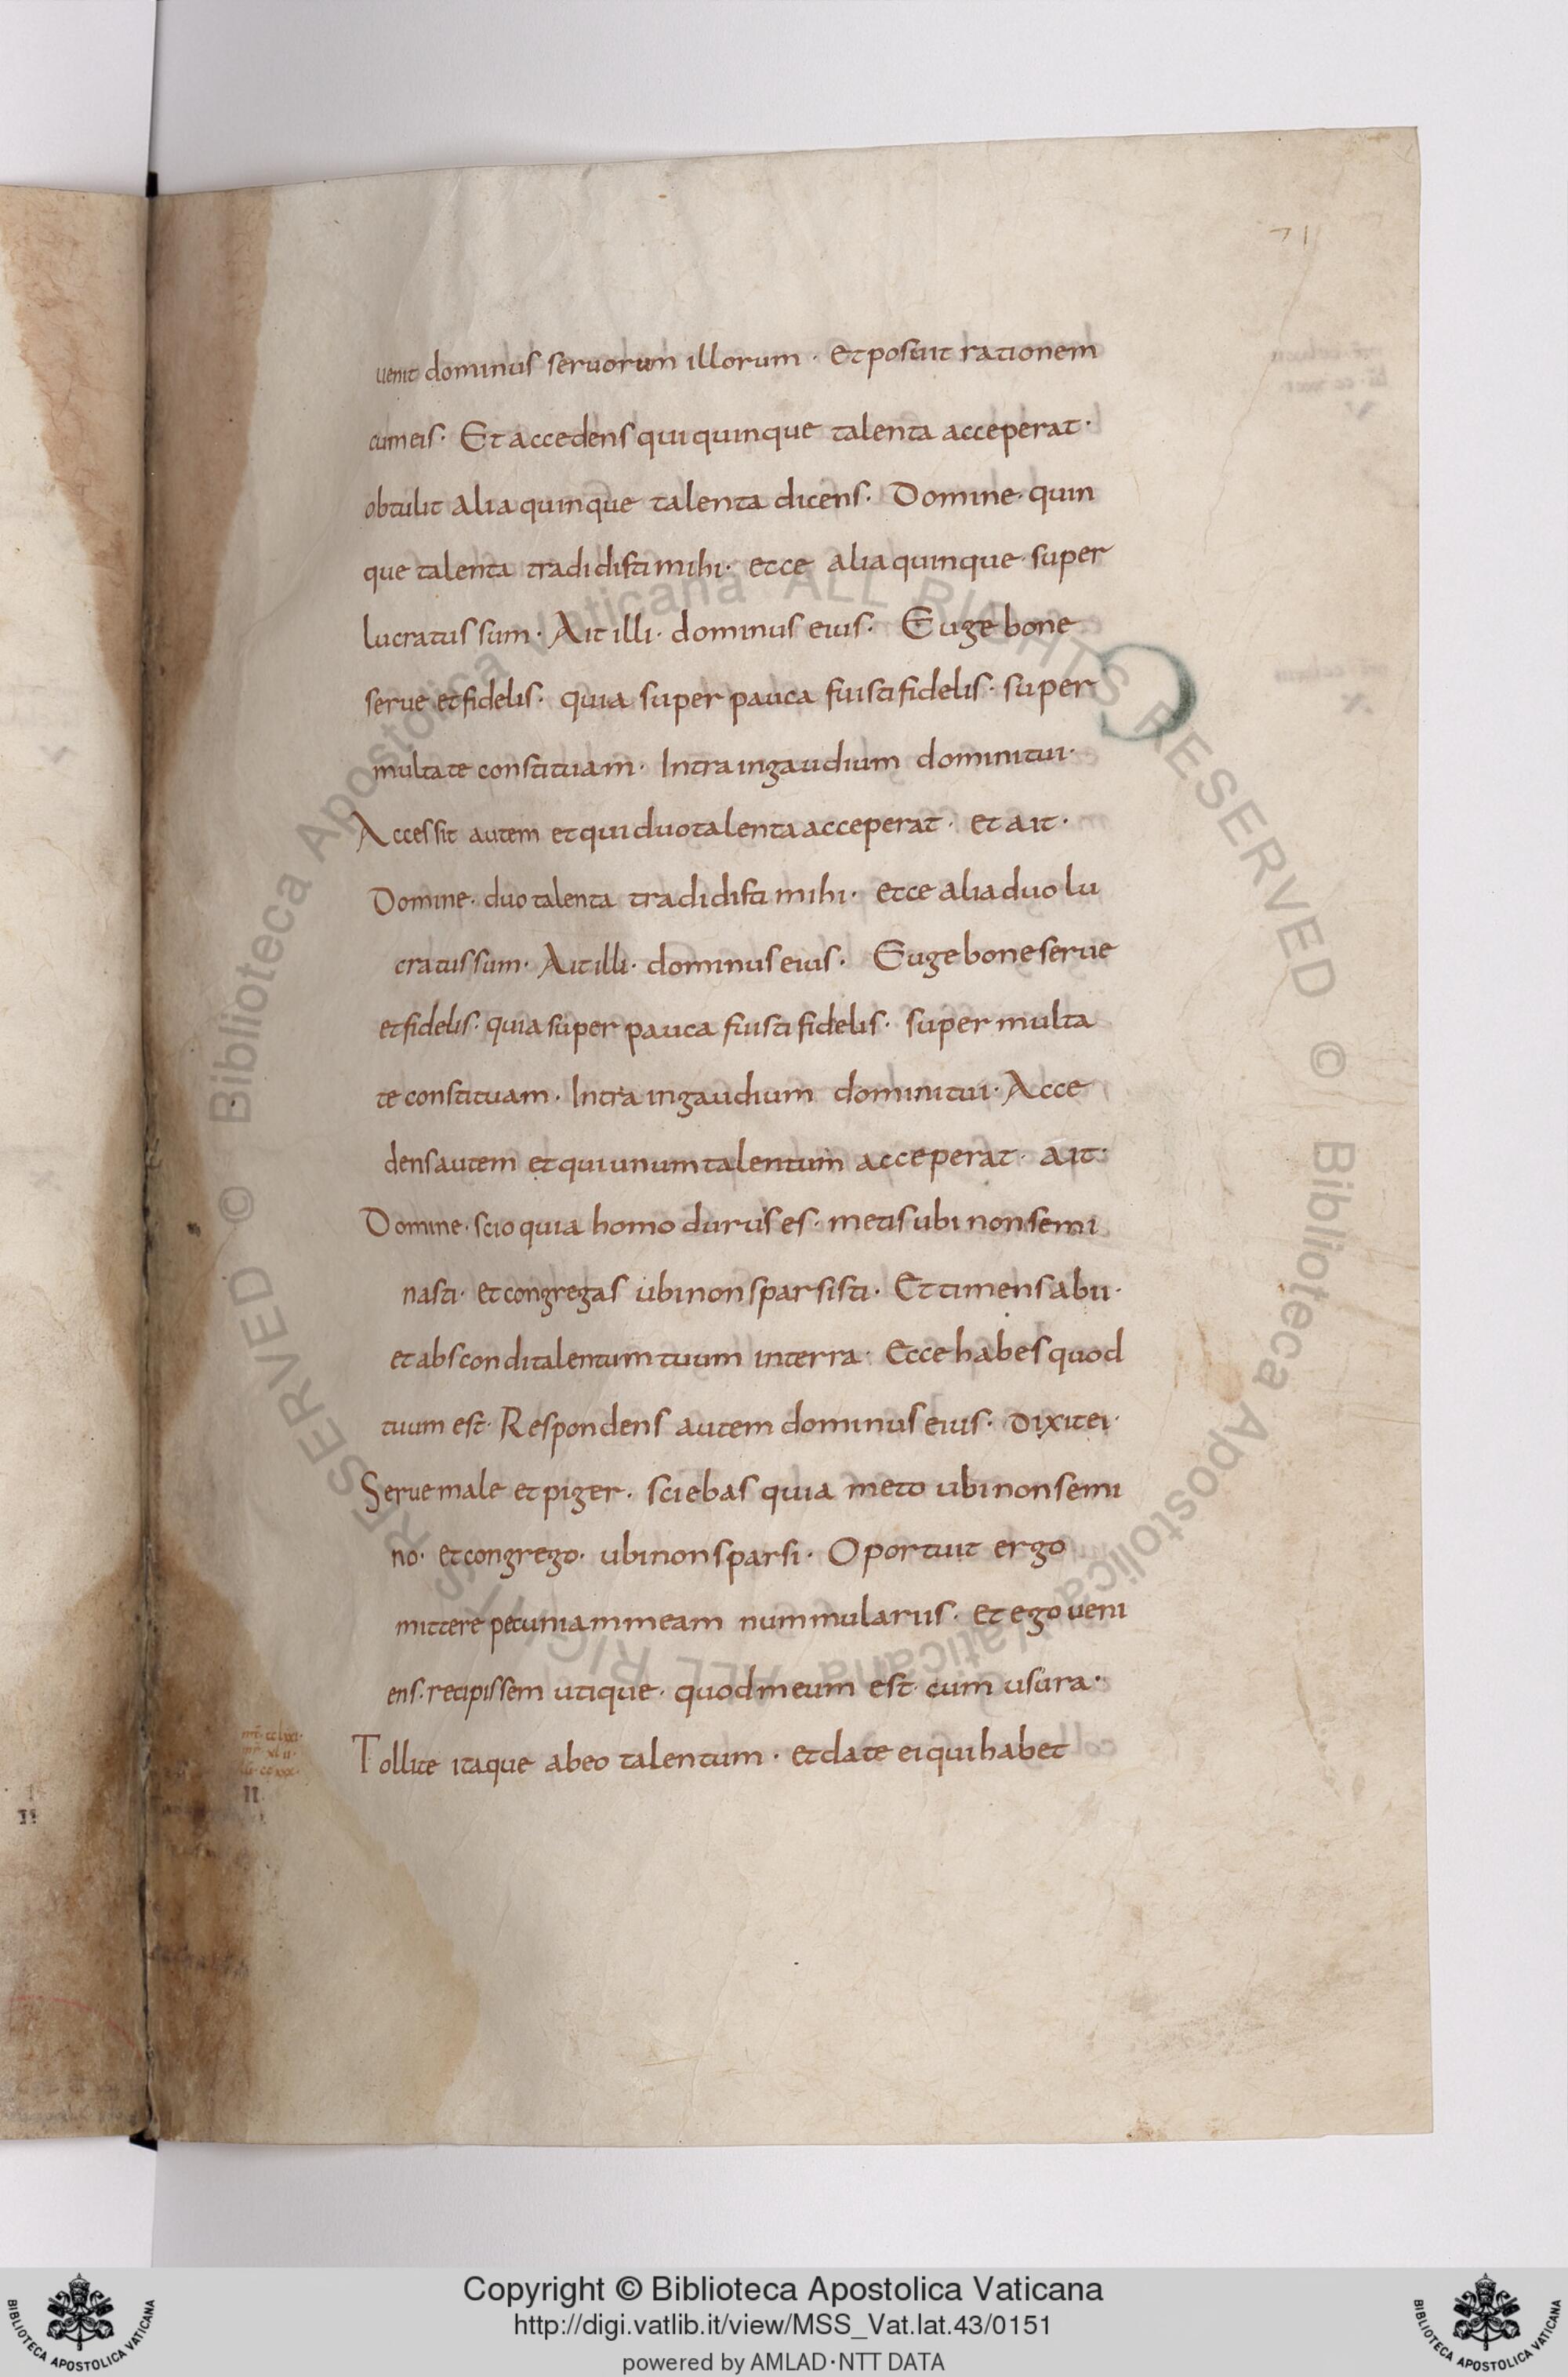 71
uenit dominus seruorum illorum · et posuit rationem
cum eis · Et accedens qui quinque talenta acceperat ·
obtulit alia quinque talenta dicens · Domine · quin
que talenta tradidisti mihi · ecce alia quinque super
lucratus sum · Ait illi · dominus eius · Euge bone
serue et fidelis · quia super pauca fuisti fidelis · super
multa te constituam · Intra in gaudium domini tui ·
Accessit autem et qui duo talenta acceperat · et ait ·
Domine · duo talenta tradidisti mihi · ecce alia duo lu
cratus sum · Ait illi · dominus eius · Euge bone serue
et fidelis · quia super pauca fuisti fidelis · super multa
te constituam · Intra in gaudium domini tui · Acce
dens autem et qui unum talentum acceperat · ait ·
Domine · scio quia homo durus es · metis ubi non semi
nasti · et congregas ubi non sparsisti · Et timens abii ·
et abscondi talentum tuum in terra · Ecce habes quod
tuum est · Respondens autem dominus eius · dixit ei ·
Serue male et piger · sciebas quia meto ubi non semi
no · et congrego · ubi non sparsi · Oportuit ergo
mittere pecuniam meam nummulariis · et ego ueni
ens · recipissem utique · quod meum est · cum usura ·
Tollite itaque ab eo talentum · et date ei qui habet
II
Copyright © Biblioteca Apostolica Vaticana
http://digi.vatlib.it/view/MSS_Vat.lat.43/0151
powered by AMLAD·NTT DATA
BIBLIOTECA APOSTOLICA VATICANA
BIBLIOTECA APOSTOLICA VATICANA
© Biblioteca Apostolica Vaticana ALL RIGHTS RESERVED
© Biblioteca Apostolica Vaticana ALL RIGHTS RESERVED